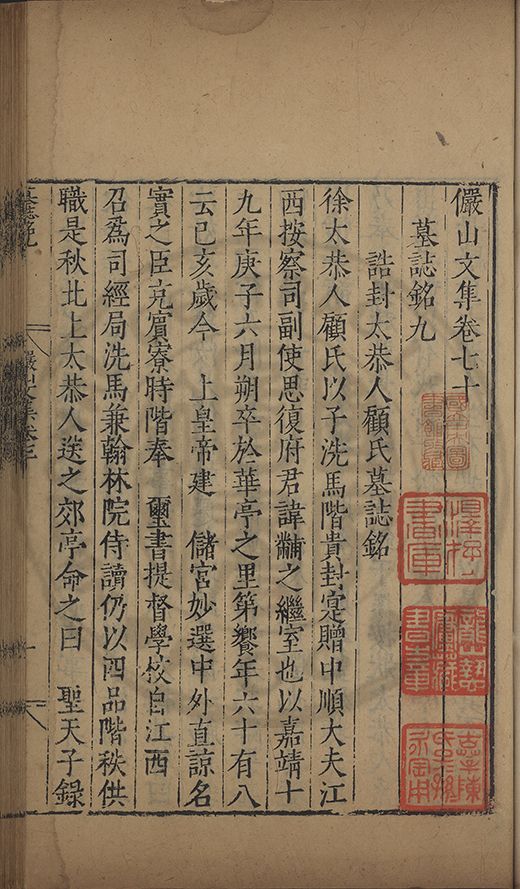 儼山文集卷七十
墓誌銘九
誥封太恭人顧氏墓誌銘
徐太恭人顧氏以子洗馬階貴封寔贈中順大夫江
西按察司副使思復府君諱黼之繼室也以嘉靖十
九年庚子六月朔卒於華亭之里第饗年六十有八
云已亥歲今 上皇帝建 儲宮妙選中外直諒名
實之臣充賓寮時階奉 璽書提督學校自江西
召爲司經局洗馬兼翰林院侍讀仍以四品階秩供
職是秋北上太恭人送之郊亭命之曰 聖天子錄